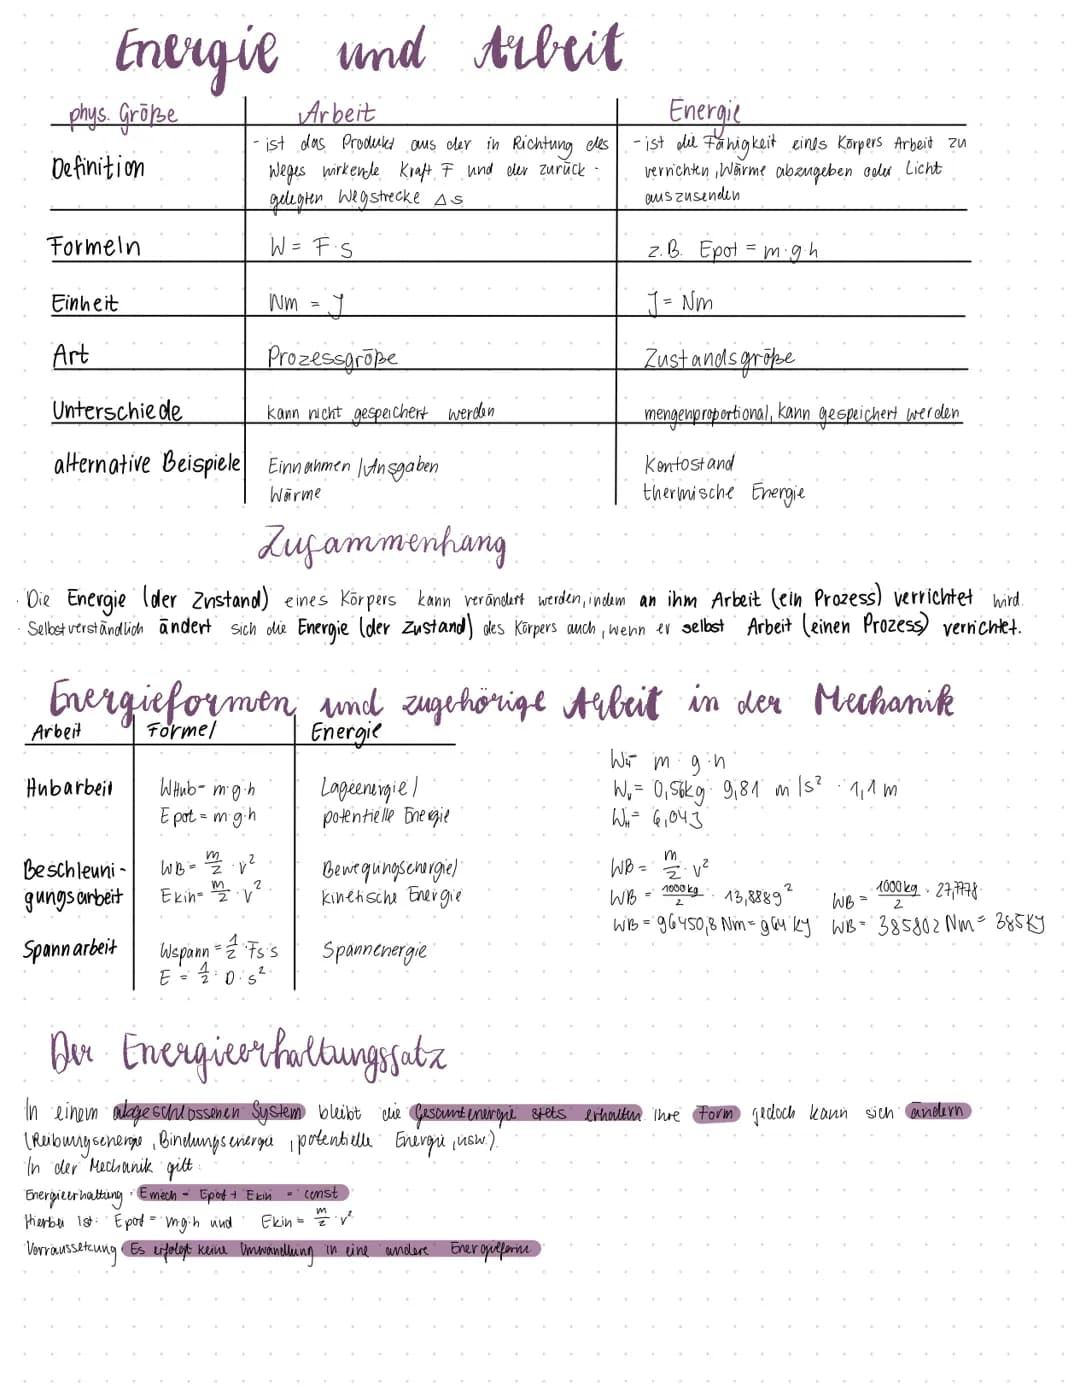 Energie und Arbeit
phys. Größe Arbeit Energie
Definition
- ist das Produkt aus der in Richtung des
Weges wirkende Kraft F und der zurück-
gelegten Wegstrecke Δs
- ist die Fähigkeit eines Körpers Arbeit zu
verrichten, Wärme abzugeben oder Licht
auszusenden
Formeln W = F·s z.B. Epot = m·g·h
Einheit Nm = J J = Nm
Art Prozessgröße Zustandsgröße
Unterschiede kann nicht gespeichert werden mengenproportional, kann gespeichert werden
alternative Beispiele Einnahmen/Ausgaben Kontostand
Wärme thermische Energie
Zusammenhang
· Die Energie (der Zustand) eines Körpers kann verändert werden, indem an ihm Arbeit (ein Prozess) verrichtet wird.
· Selbstverständlich ändert sich die Energie (der Zustand) des Körpers auch, wenn er selbst Arbeit (einen Prozess) verrichtet.
Energieformen und zugehörige Arbeit in der Mechanik
Arbeit Formel Energie
Hubarbeit WHub= m·g·h Lageenergie/
Epot = m·g·h potentielle Energie
Beschleuni- WB = m/2 · v² Bewegungsenergie/
gungsarbeit Ekin= m/2 · v² kinetische Energie
Spannarbeit Wspann = 1/2 Fs·s Spannenergie
E = 1/2 · D · s²
m · g · h
= 0,56kg · 9,81 m/s² · 1,1 m
= 6,04J
WB = m/2 · v²
WB = 1000kg/2 · 13,8889² WB = 1000kg/2 · 27,7778
WB = 96450,8 Nm = WB = 385802 Nm = 385KJ
Der Energieerhaltungssatz
In einem abgeschlossenen System bleibt die Gesamtenergie stets erhalten. Ihre Form jedoch kann sich ändern
(Reibungsenergie, Bindungsenergie, potentielle Energie, usw.).
In der Mechanik gilt:
Energieerhaltung: Emech = Epot + Ekin = const
Hierbei ist: Epot = m·g·h und Ekin = m/2 · v²
Vorraussetzung Es erfolgt keine Umwandlung in eine andere Energieform